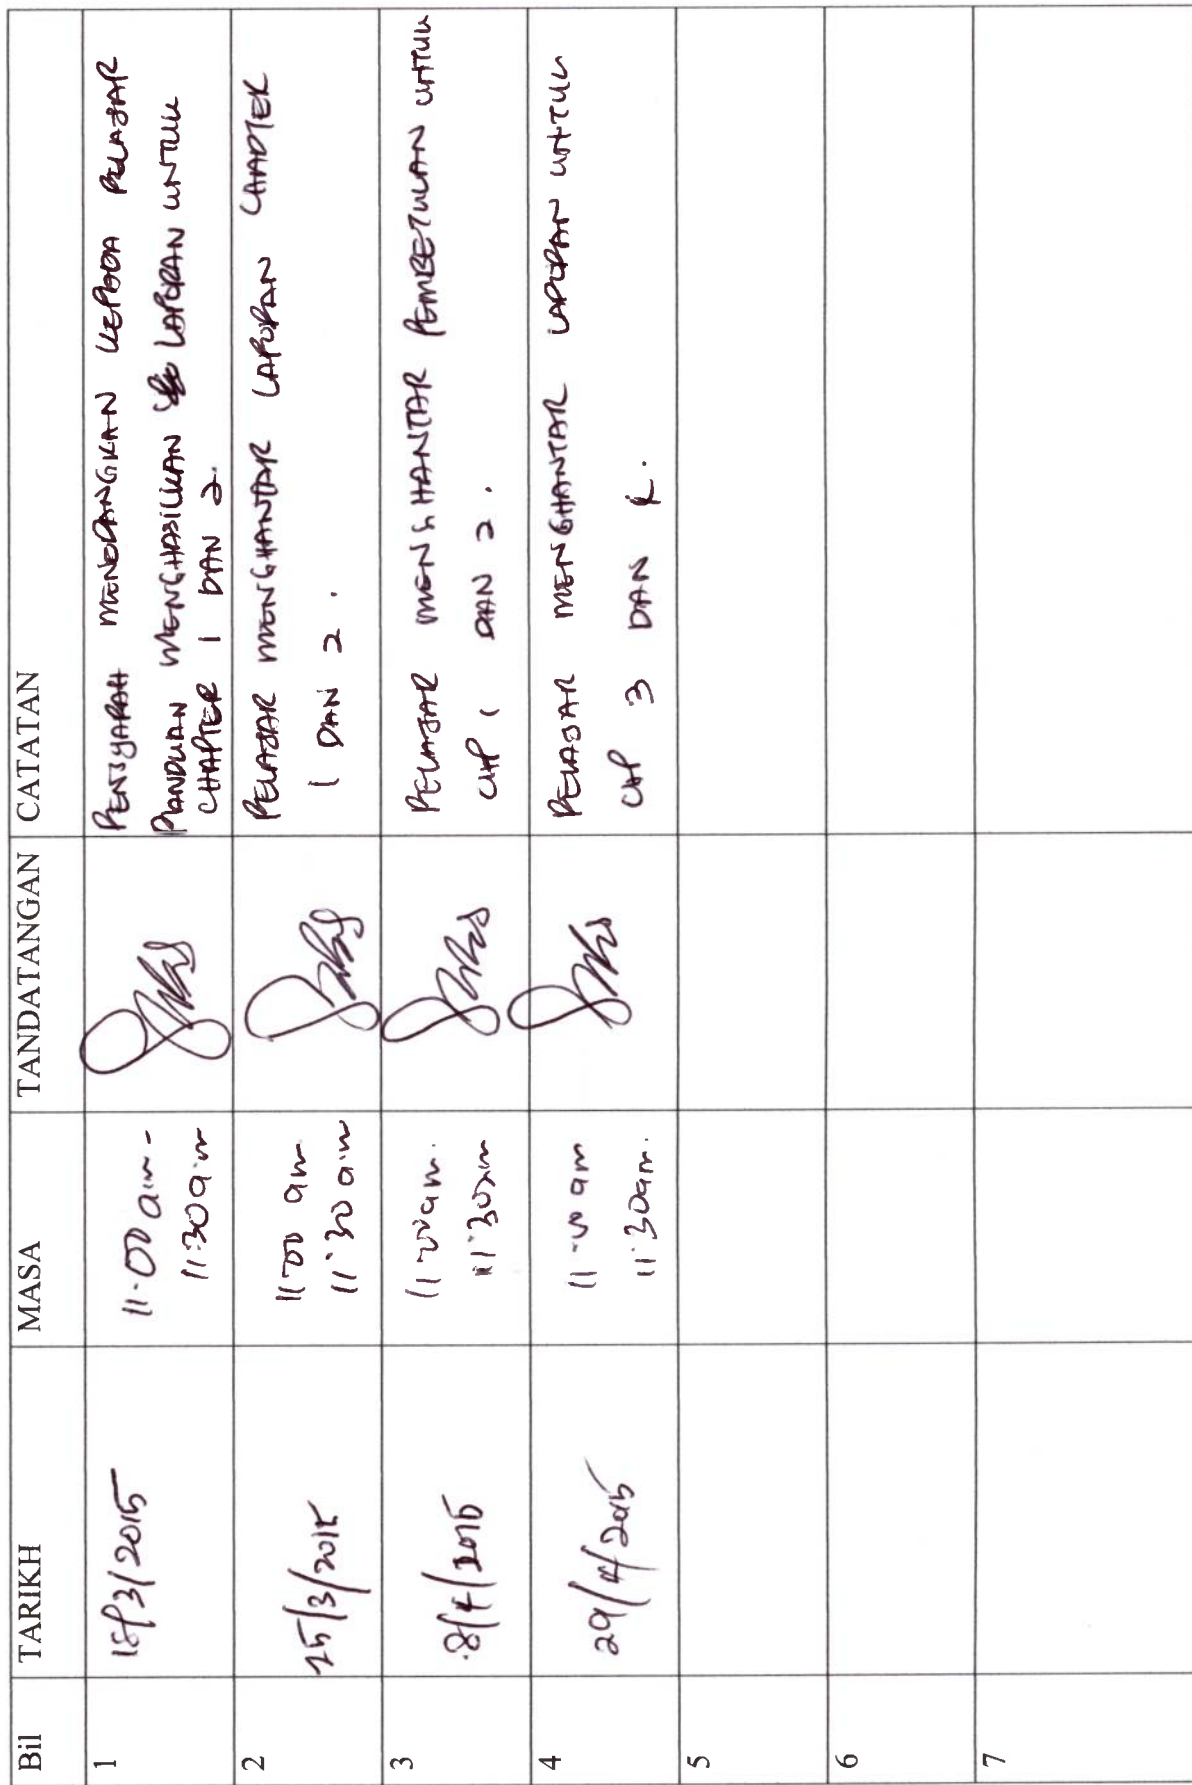 Bil TARIKH MASA TANDATANGAN CATATAN
1 18/3/2015 11.00 a.m - PENSYARAH MENERANGKAN KEPADA PELAJAR
11:30 a.m PANDUAN MENGHASILKAN LAPORAN UNTUK
CHAPTER 1 DAN 2.
2 25/3/2015 11.00 am PELAJAR MENGHANTAR LAPORAN CHAPTER
11:30 a.m 1 DAN 2.
3 8/4/2015 11.00am. PELAJAR MENGHANTAR PEMBETULAN UNTUK
11:30am CHP 1 DAN 2.
4 29/4/2015 11.00 am PELAJAR MENGHANTAR LAPORAN UNTUK
11:30am. CHP 3 DAN 4.
5
6
7